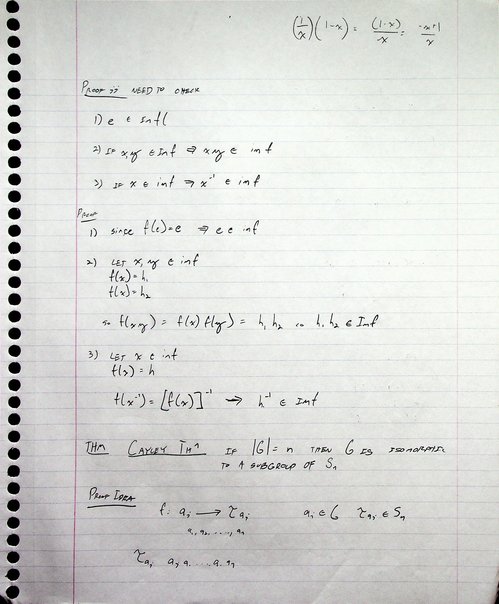 (1/x)(1-x) = (1-x)/x = -x+1/x
Proof ii NEED TO CHECK
1) e ∈ Imf
2) IF x,y ∈ Imf ⇒ xy ∈ imf
3) IF x ∈ imf ⇒ x⁻¹ ∈ imf
Proof
1) since f(e)=e ⇒ e ∈ imf
2) LET x,y ∈ imf
f(x)=h₁
f(x)=h₂
so f(xy) = f(x)f(y) = h₁h₂ so h₁h₂ ∈ Imf
3) LET x ∈ imf
f(x)=h
f(x⁻¹) = [f(x)]⁻¹ → h⁻¹ ∈ Imf
THM CAYLEY THM IF |G|=n THEN G IS ISOMORPHIC
TO A SUBGROUP OF Sₙ
Proof IDEA
f: aᵢ → τaᵢ aᵢ ∈ G τaᵢ ∈ Sₙ
a₁,a₂,...,aₙ
τaᵢ